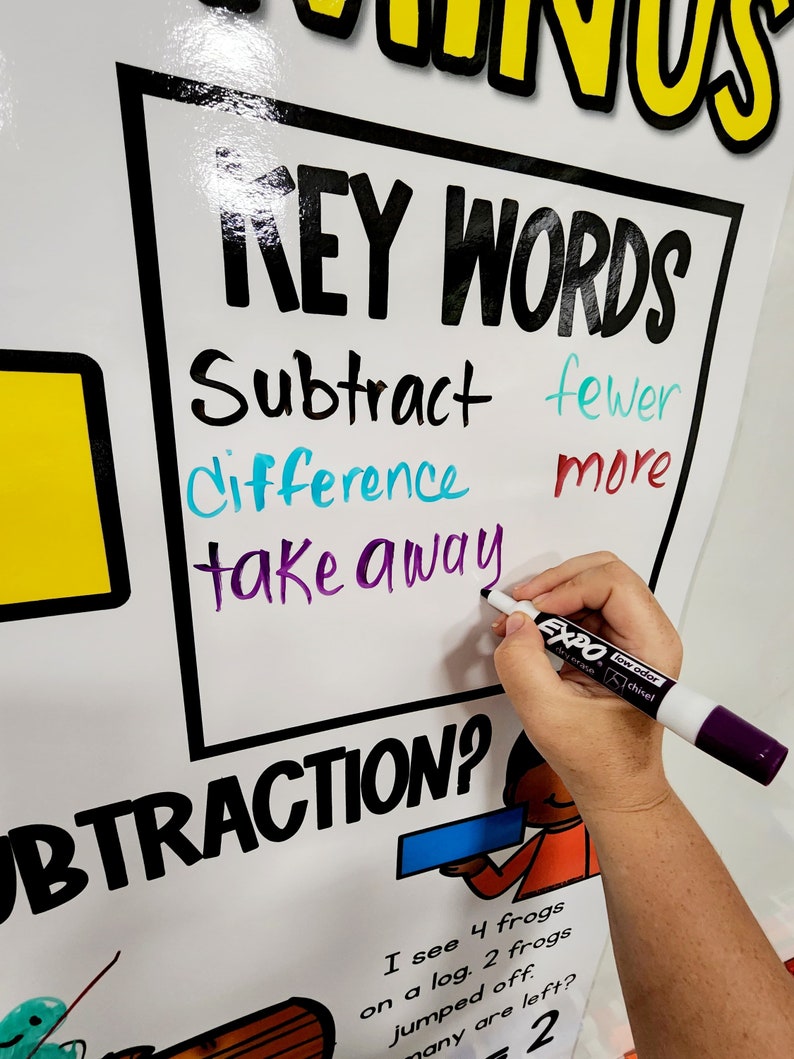 MINUS
KEY WORDS
Subtract fewer
difference more
take away
EXPO low odor
dry erase chisel
SUBTRACTION?
I see 4 frogs
on a log. 2 frogs
jumped off.
many are left?
= 2